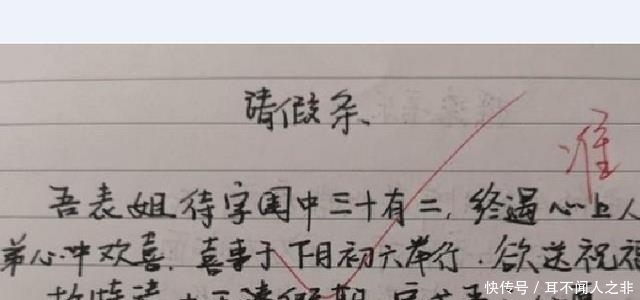 请假条
准
吾表姐待字闺中三十有二,终遇心上人
弟心中欢喜.喜事于下月初六举行.欲送祝福
快传号/耳不闻人之非